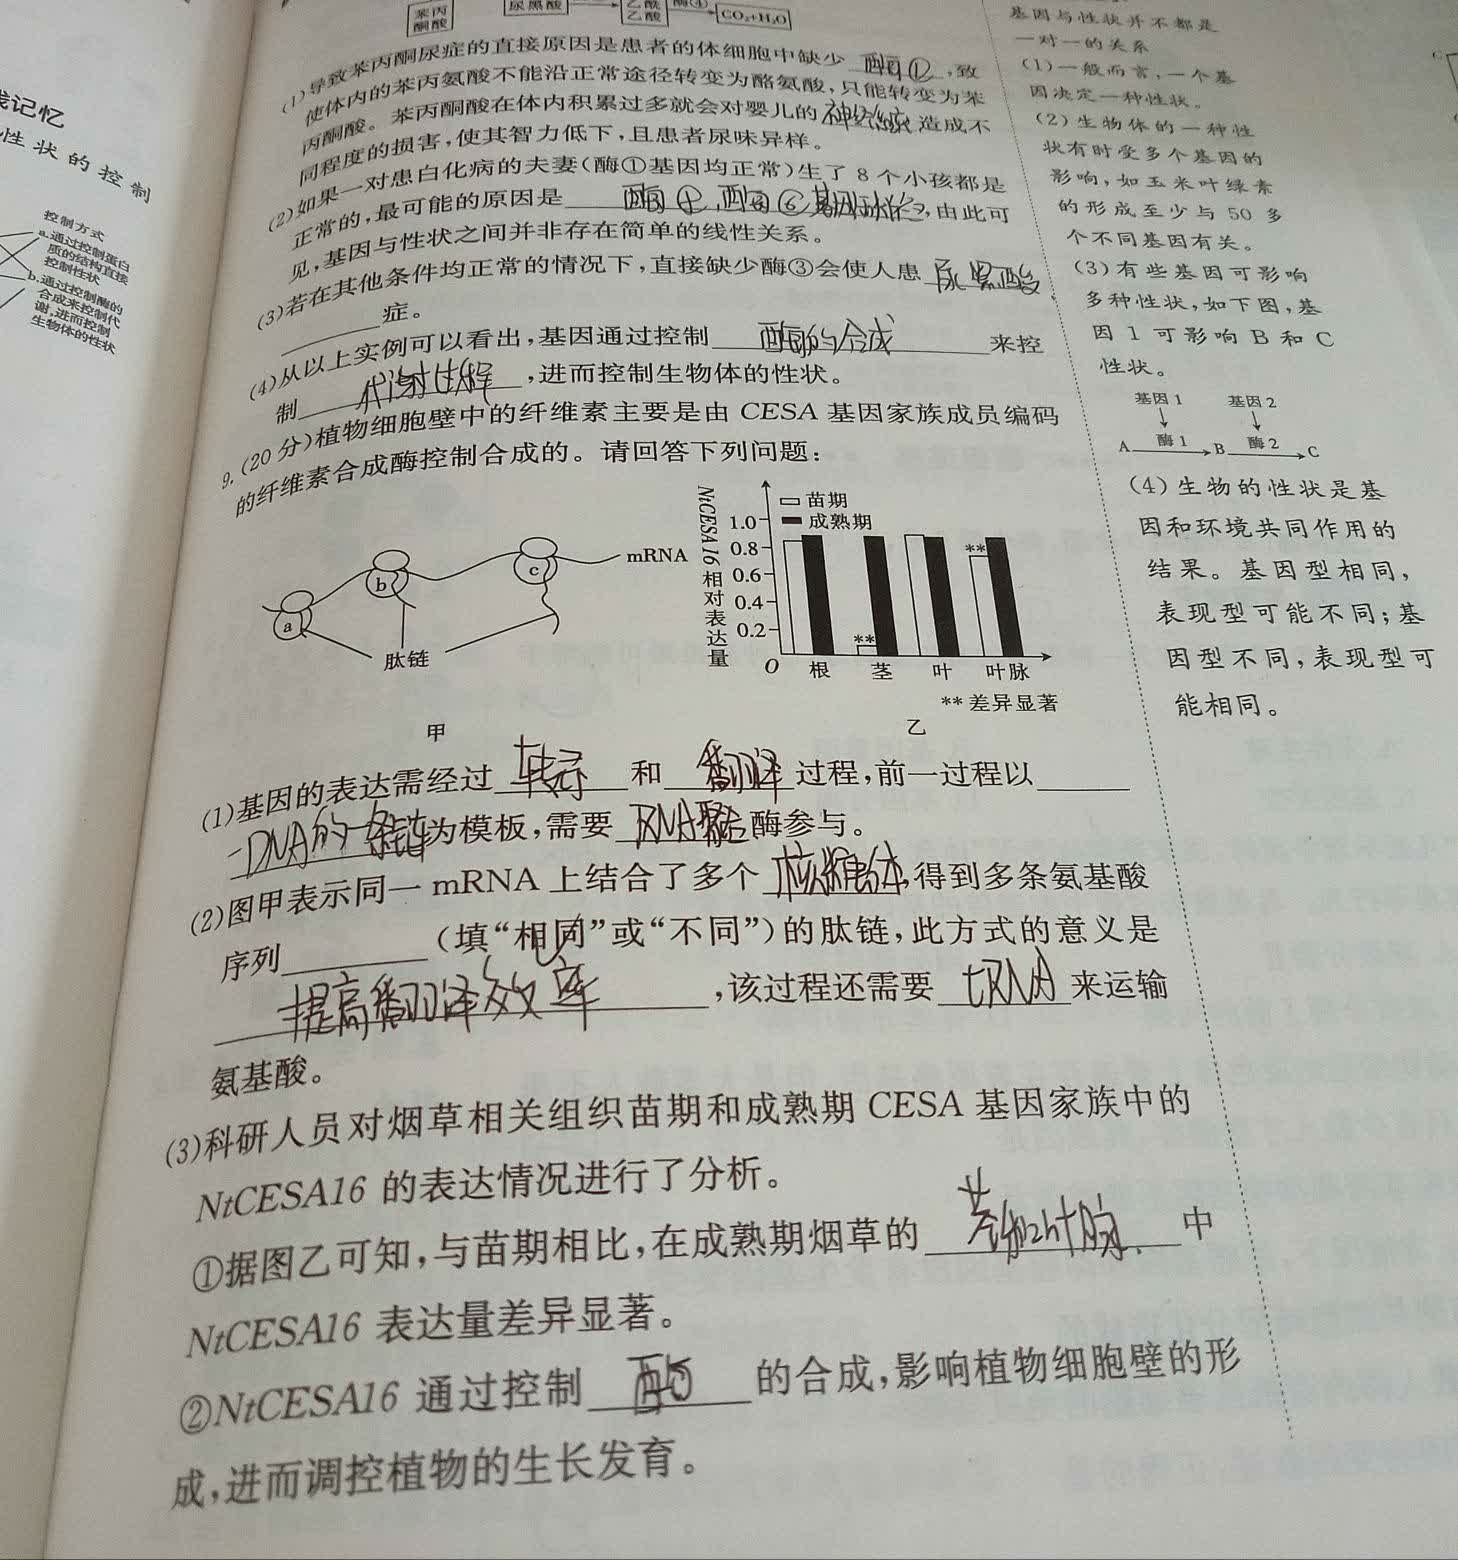 苯丙
酮酸
尿黑酸
乙酰
乙酸
酶④
CO₂+H₂O
(1)导致苯丙酮尿症的直接原因是患者的体细胞中缺少 酶①,致
使体内的苯丙氨酸不能沿正常途径转变为酪氨酸,只能转变为苯
丙酮酸。苯丙酮酸在体内积累过多就会对婴儿的神经系统造成不
同程度的损害,使其智力低下,且患者尿味异样。
(2)如果一对患白化病的夫妻(酶①基因均正常)生了 8 个小孩都是
正常的,最可能的原因是 ,由此可
见,基因与性状之间并非存在简单的线性关系。
(3)若在其他条件均正常的情况下,直接缺少酶③会使人患 尿黑酸
症。
(4)从以上实例可以看出,基因通过控制 酶的合成 来控
制 代谢过程 ,进而控制生物体的性状。
9.(20 分)植物细胞壁中的纤维素主要是由 CESA 基因家族成员编码
的纤维素合成酶控制合成的。请回答下列问题:
a
b
c
mRNA
肽链
甲
NtCESA16 相对表达量
苗期
成熟期
1.0
0.8
0.6
0.4
0.2
O
**
**
根 茎 叶 叶脉
** 差异显著
乙
(1)基因的表达需经过 转录 和 翻译 过程,前一过程以
DNA的一条链为模板,需要 RNA聚合酶参与。
(2)图甲表示同一 mRNA 上结合了多个 核糖体,得到多条氨基酸
序列 (填“相同”或“不同”)的肽链,此方式的意义是
提高翻译效率 ,该过程还需要 tRNA 来运输
氨基酸。
(3)科研人员对烟草相关组织苗期和成熟期 CESA 基因家族中的
NtCESA16 的表达情况进行了分析。
①据图乙可知,与苗期相比,在成熟期烟草的 茎和叶脉 中
NtCESA16 表达量差异显著。
②NtCESA16 通过控制 酶 的合成,影响植物细胞壁的形
成,进而调控植物的生长发育。
基因与性状并不都是
一对一的关系
(1)一般而言,一个基
因决定一种性状。
(2)生物体的一种性
状有时受多个基因的
影响,如玉米叶绿素
的形成至少与 50 多
个不同基因有关。
(3)有些基因可影响
多种性状,如下图,基
因 1 可影响 B 和 C
性状。
基因1 基因2
A 酶1 B 酶2 C
(4)生物的性状是基
因和环境共同作用的
结果。基因型相同,
表现型可能不同;基
因型不同,表现型可
能相同。
记忆
性状的控制
控制方式
a.通过控制蛋白
质的结构直接
控制性状
b.通过控制酶的
合成来控制代
谢,进而控制
生物体的性状